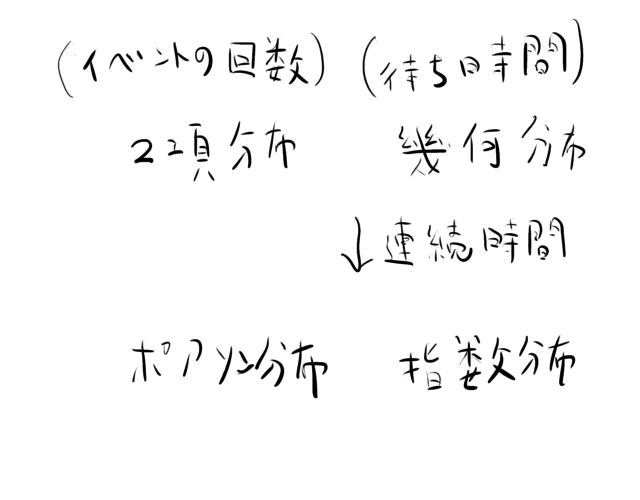 (イベントの回数) (待ち時間)
2項分布 幾何分布
↓連続時間
ポアソン分布 指数分布